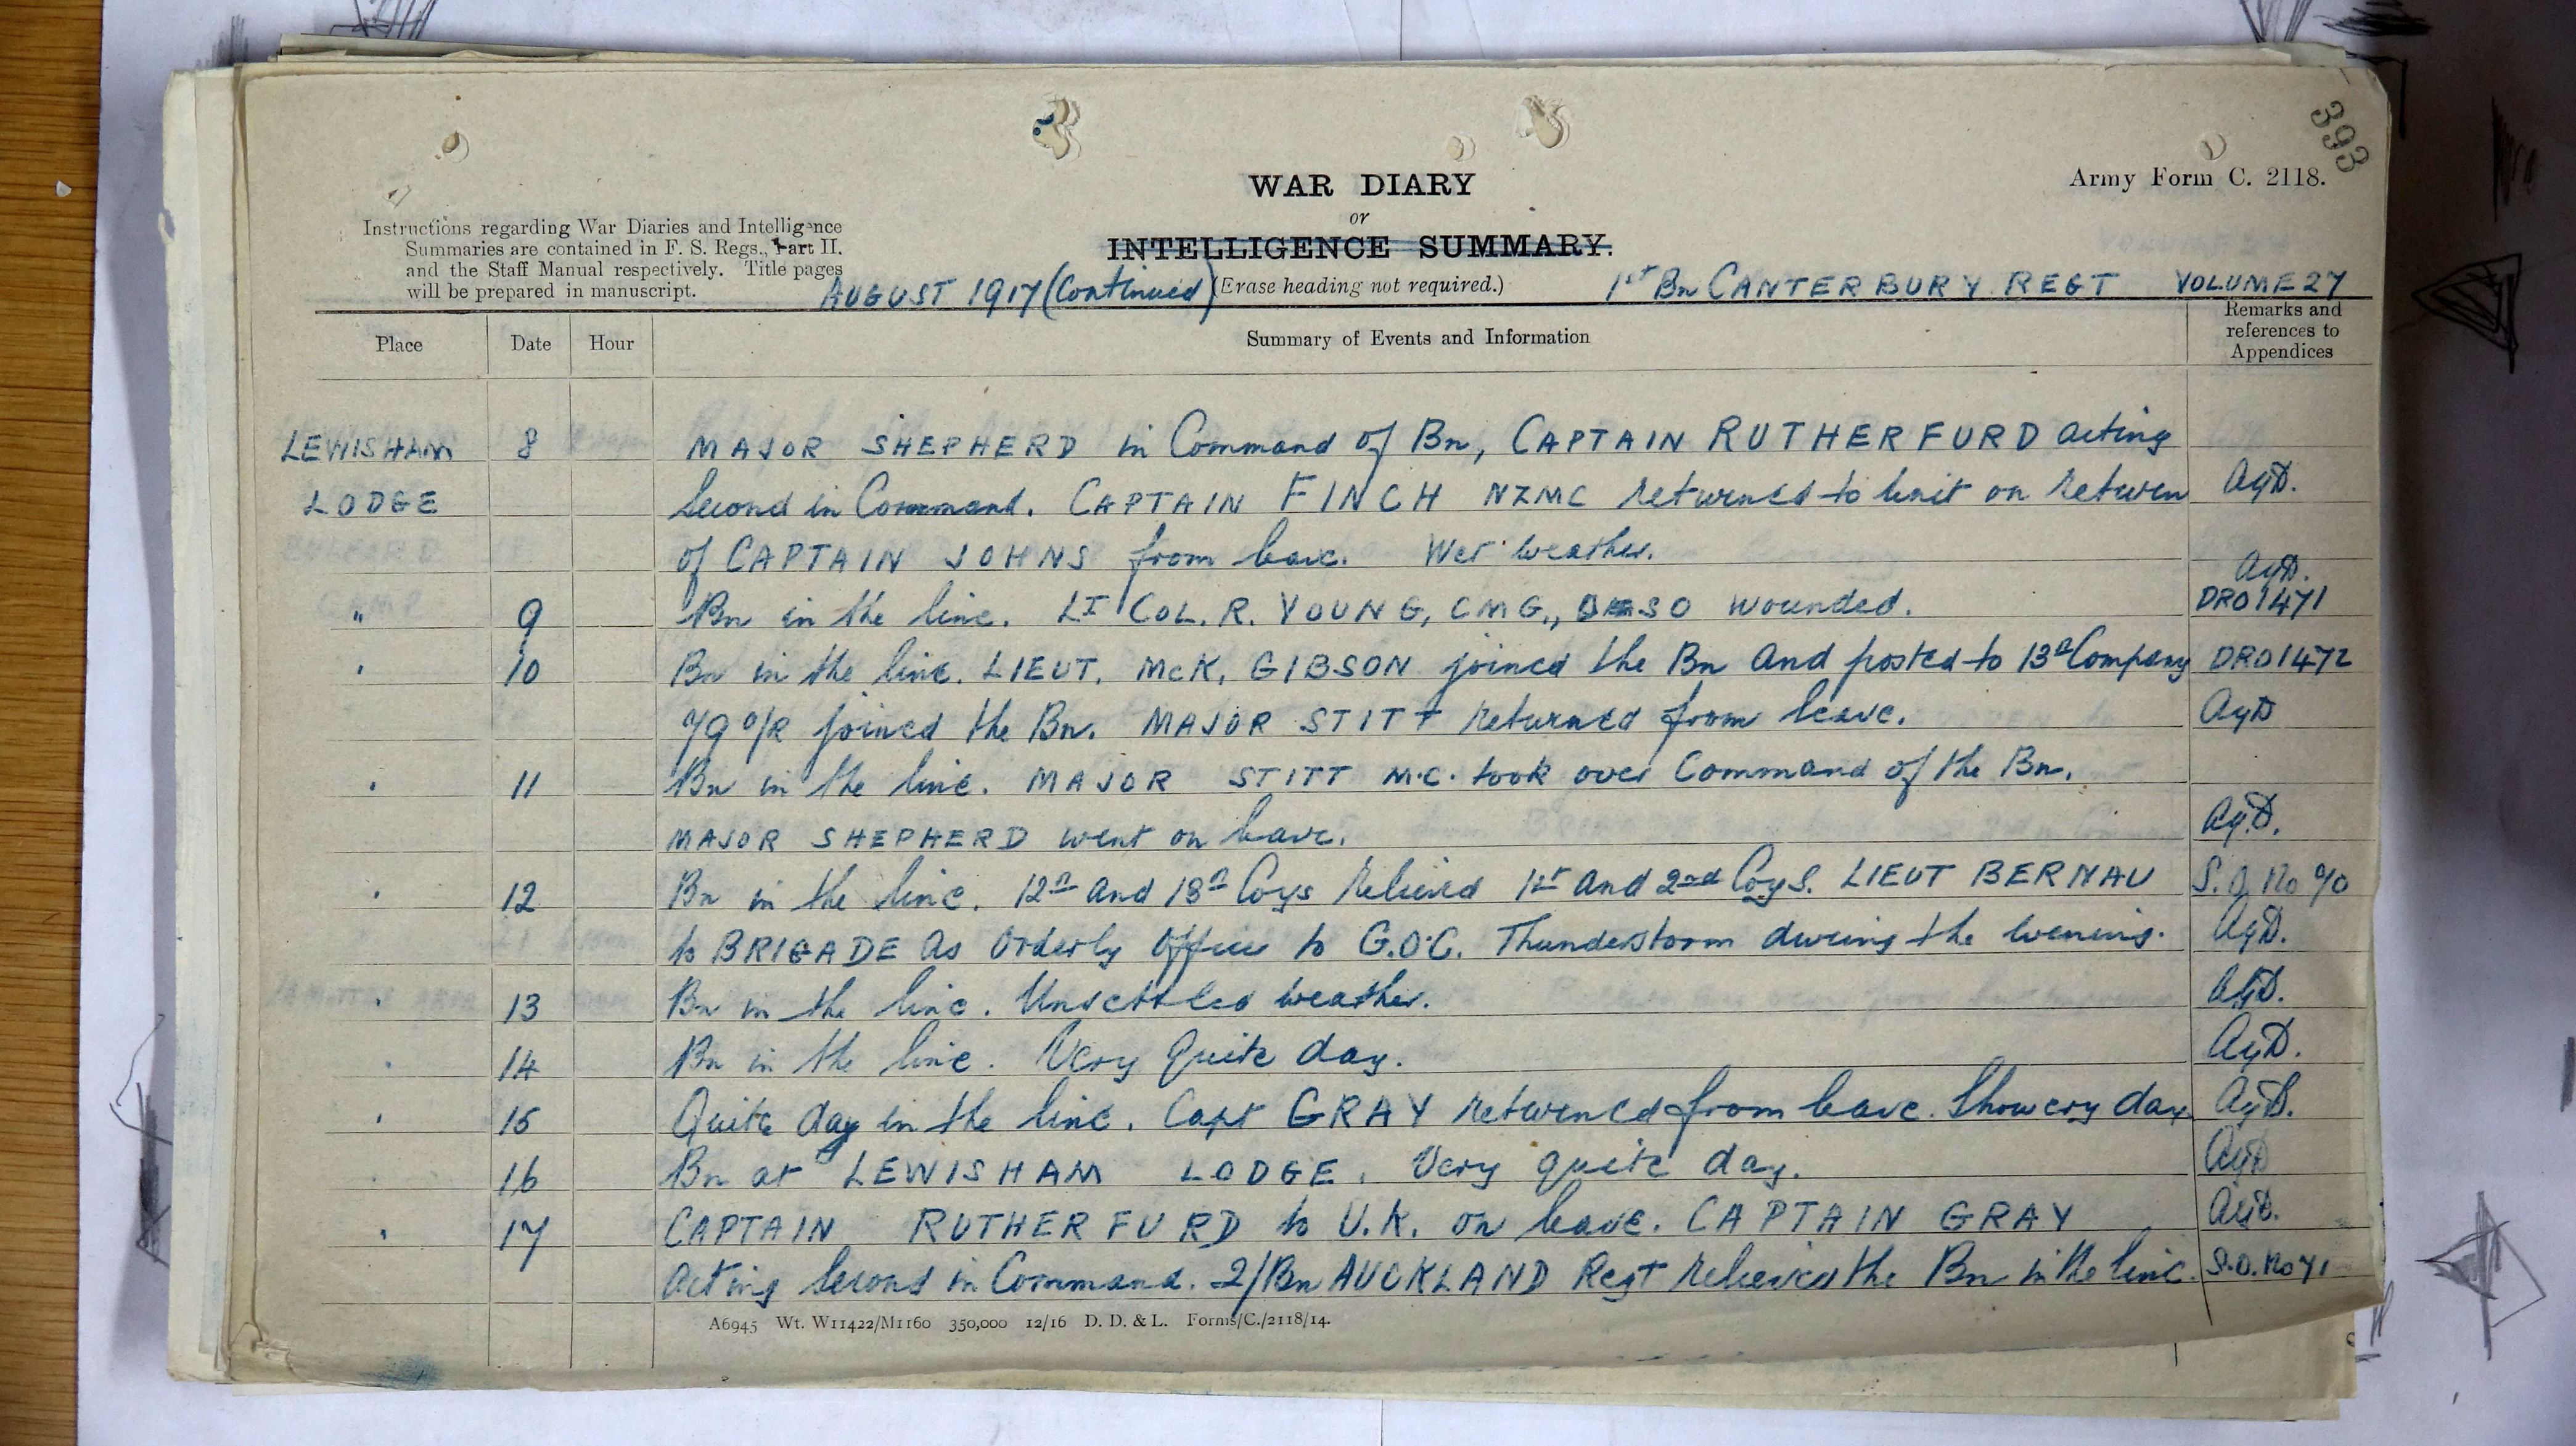 393
Army Form C. 2118.
WAR DIARY
or
INTELLIGENCE SUMMARY.
(Erase heading not required.)
Instructions regarding War Diaries and Intelligence
Summaries are contained in F. S. Regs., Part II.
and the Staff Manual respectively. Title pages
will be prepared in manuscript.
AUGUST 1917 (Continued)
1st Bn CANTERBURY REGT VOLUME 27
Place Date Hour Summary of Events and Information Remarks and
references to
Appendices
LEWISHAM 8 MAJOR SHEPHERD in Command of Bn, CAPTAIN RUTHERFURD acting
LODGE Second in Command. CAPTAIN FINCH NZMC returned to Unit on return
of CAPTAIN JOHNS from leave. Wet weather.
" 9 Bn in the line. Lt COL. R. YOUNG, CMG., DSO wounded. DRO 1471
10 Bn in the line. LIEUT. McK. GIBSON joined the Bn and posted to 13th Company DRO 1472
79 O/R joined the Bn. MAJOR STITT returned from leave.
11 Bn in the line. MAJOR STITT M.C. took over Command of the Bn.
MAJOR SHEPHERD went on leave.
12 Bn in the line. 12th and 13th Coys relieved 1st and 2nd Coys. LIEUT BERNAU S.O. No 70
to BRIGADE as Orderly Officer to G.O.C. Thunderstorm during the evening.
13 Bn in the line. Unsettled weather.
14 Bn in the line. Very Quite day.
15 Quite day in the line. Capt GRAY returned from leave. Showery day
16 Bn at LEWISHAM LODGE. Very quite day.
17 CAPTAIN RUTHERFURD to U.K. on leave. CAPTAIN GRAY
acting Second in Command. 2/Bn AUCKLAND Regt relieved the Bn in the line. S.O. No 71
A6945 Wt. W11422/M1160 350,000 12/16 D. D. & L. Forms/C./2118/14.